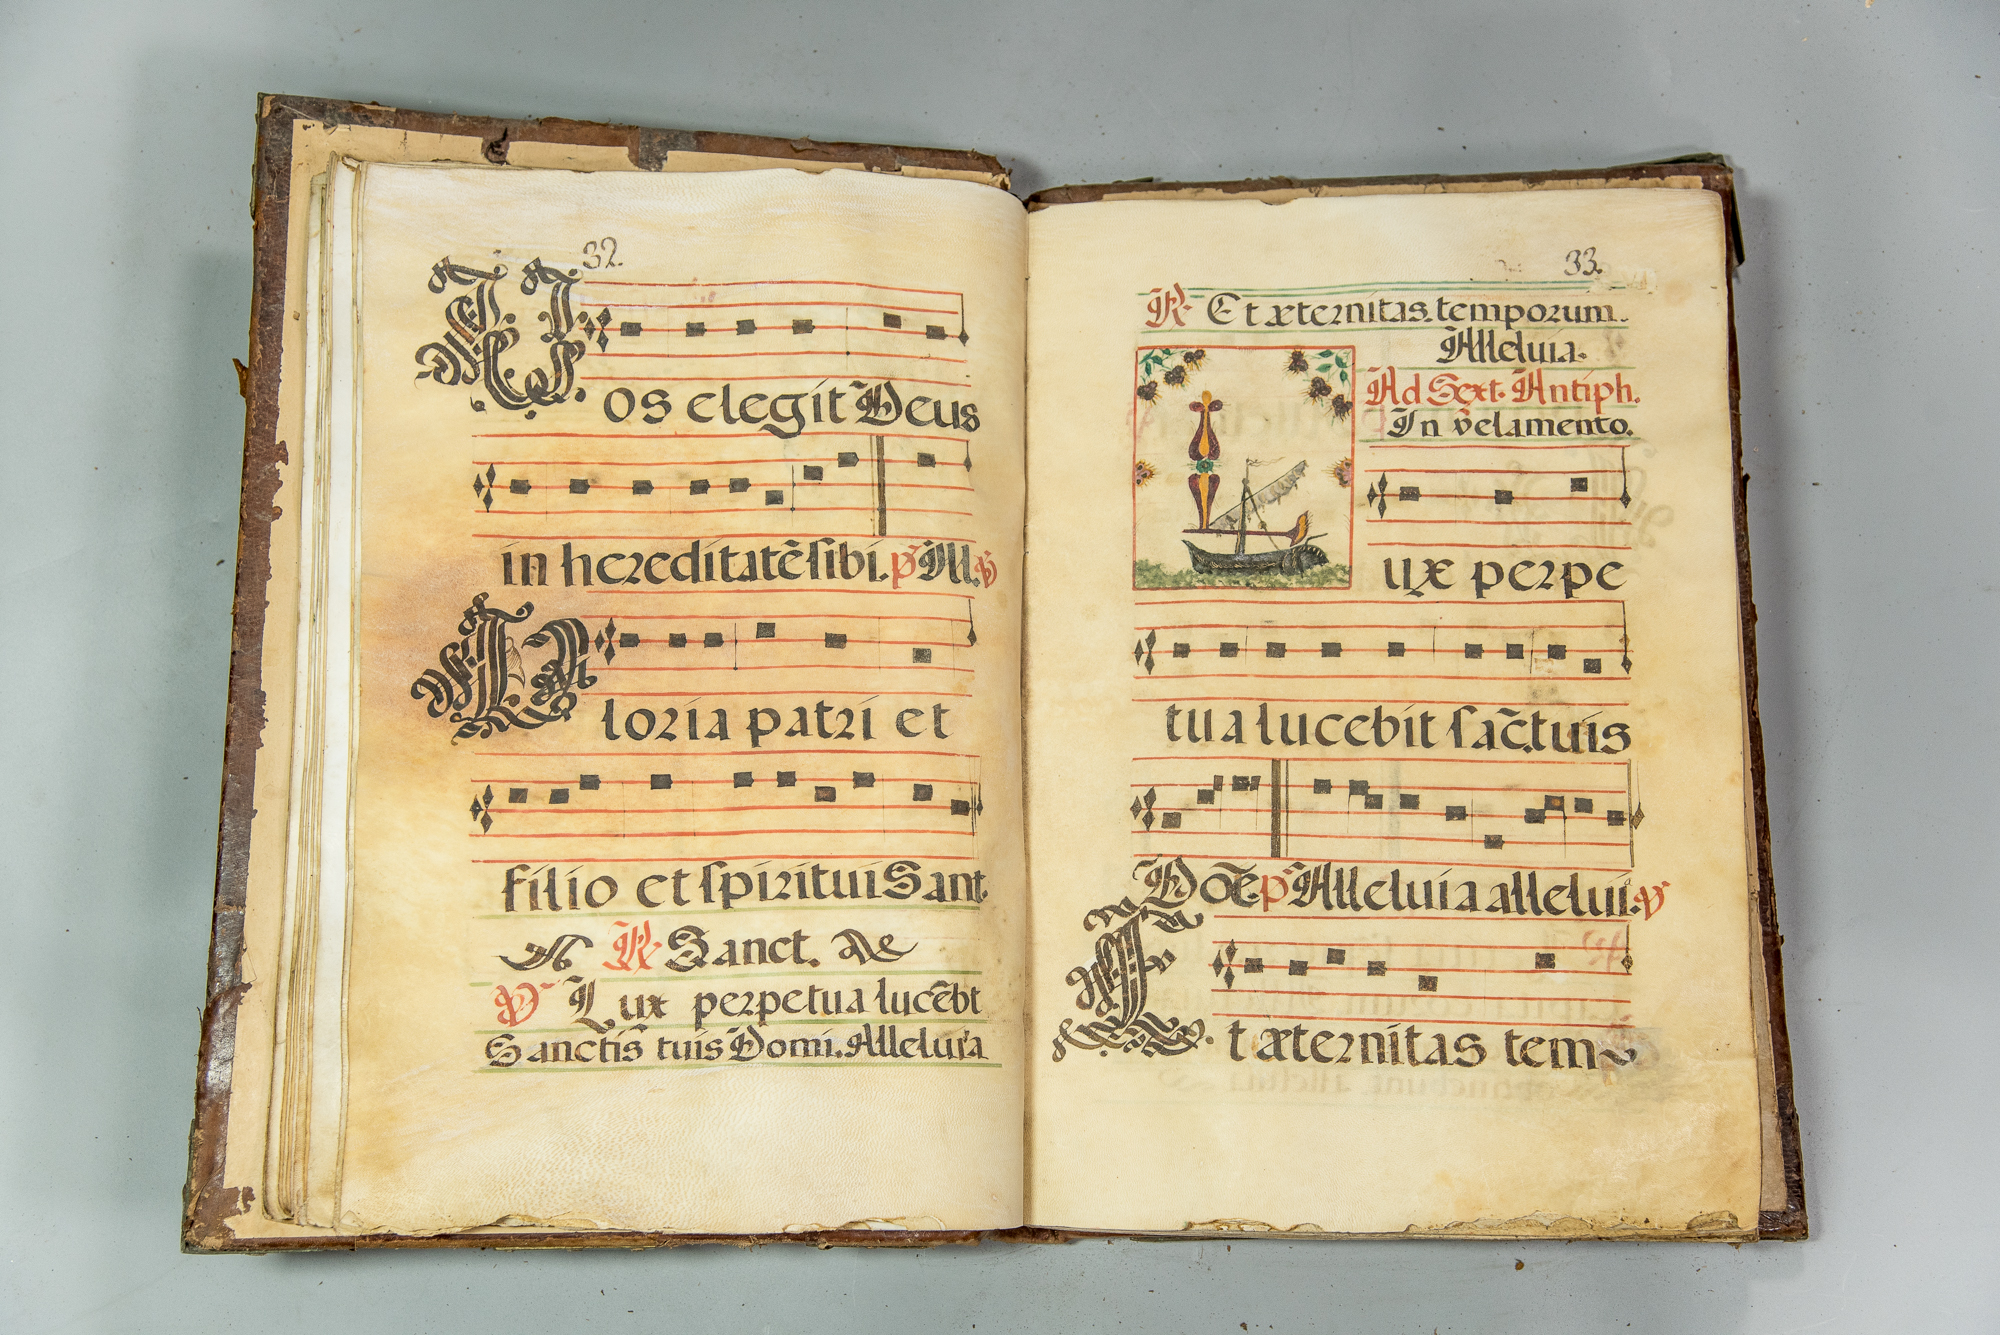 32.
os elegit Deus
in hereditatē sibi. ps All. ℣
loria patri et
filio et spiritui Sant
℟. Sanct. &
℣ Lux perpetua lucēbt
Sanctis tuis Domi. Alleluia
33.
℟. Et æternitas temporum.
Alleluia.
Ad Sext. Antiph.
In velamento.
Lux perpe
tua lucebit sac̄. tuis
Dōe. ps Alleluia allelui. ℣
Et æternitas tem~